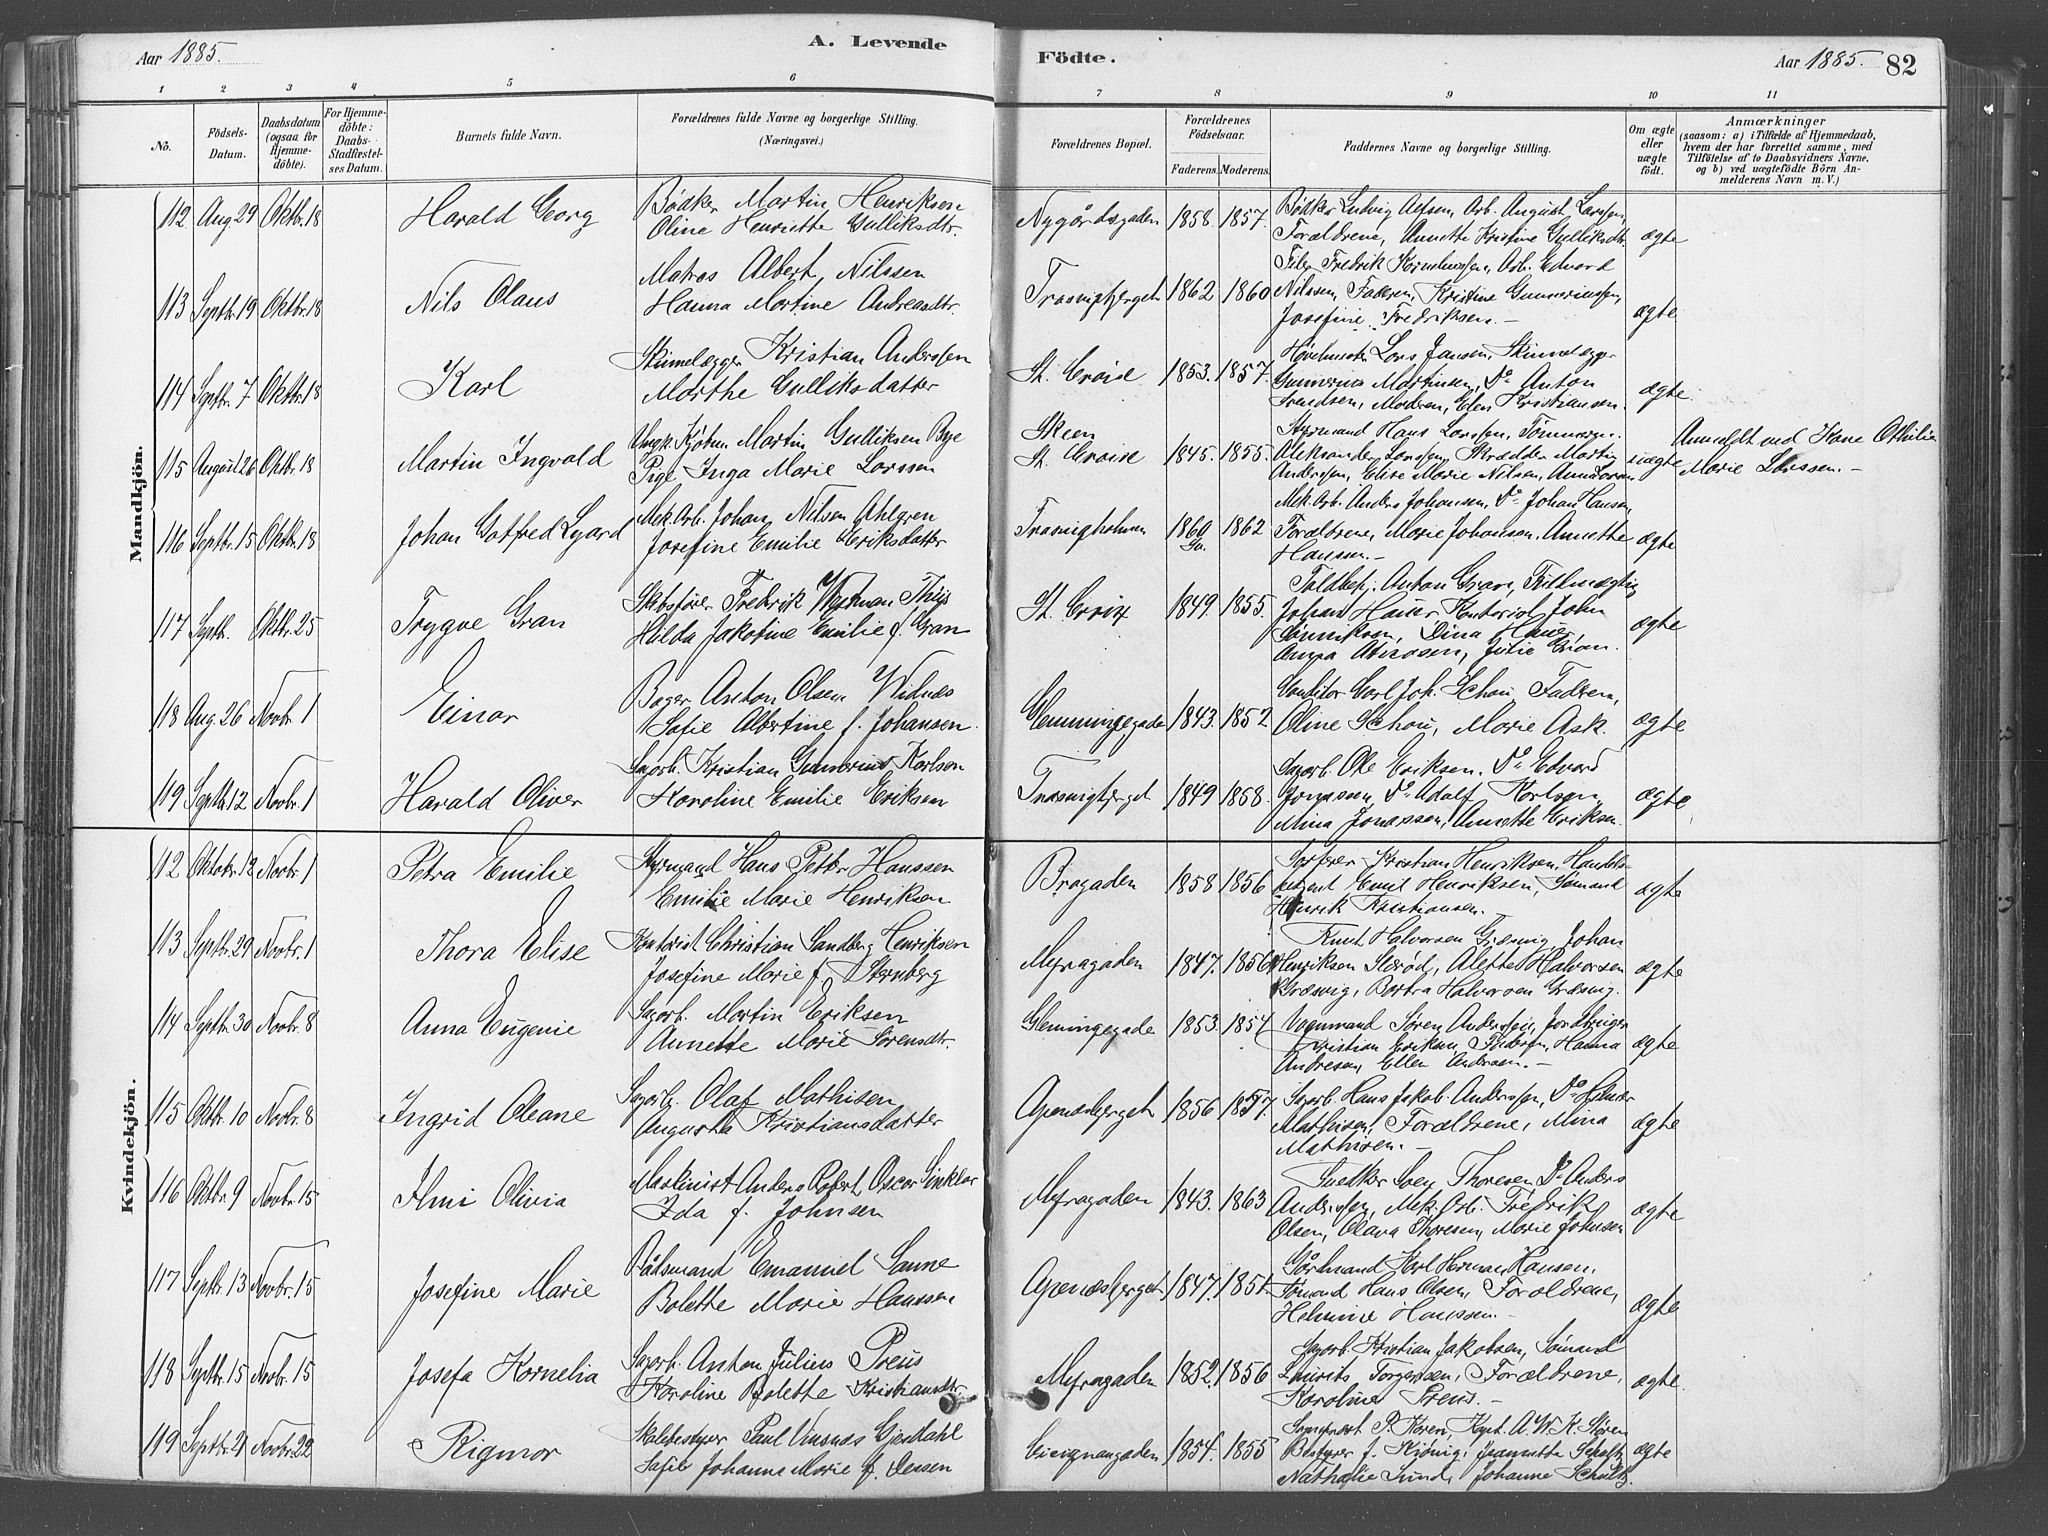 Aar 1885.
A. Levende
Födte.
Aar 1885.
82
1 2 3 4 5 6 7 8 9 10 11
No.
Födsels-
Datum.
Daabsdatum
(ogsaa for
Hjemme-
döbte).
For Hjemme-
döbte:
Daabs-
Stadfæstel-
ses Datum.
Barnets fulde Navn.
Forældrenes fulde Navne og borgerlige Stilling.
(Næringsvei.)
Forældrenes Bopæl.
Forældrenes
Födselsaar.
Faderens. Moderens.
Faddernes Navne og borgerlige Stilling.
Om ægte
eller
uægte
födt.
Anmærkninger
(saasom: a) i Tilfælde af Hjemmedaab,
hvem der har forrettet samme, med
Tilföielse af to Daabsvidners Navne.
og b) ved uægtefödte Börn An-
melderens Navn m. V.)
Mandkjön.
112. Aug. 29 Oktbr. 18 Harald Georg
Bödker Martin Henriksen
Oline Henriette Gulliksdtr.
Nygårdsgaden 1858. 1857.
Bödker Ludvig Arup, Arb. August Larssen,
Forældrene, Annette Kristine Gulliksdtr.
ægte
113 Septbr. 19 Oktbr. 18 Nils Olaus
Matros Albert Nilssen
Hanna Martine Andreasdtr.
Trosvigbjerget 1862 1860
Fredrik Arb. Edvard
Nilssen, Faderen, Kristine Gunneriussen,
Josefine Fredriksen.-
ægte
114 Septbr. 7 Oktbr. 18 Karl
Skinnelægger Kristian Anderssen
Marthe Gulliksdatter
St. Croix 1853. 1857.
Lars Jansen, Skinnelægger
Gunnerius Martinsen, Do Anton
Svendsen, Moderen, Elen Kristiansen.
ægte
115 August 20 Oktbr. 18 Martin Ingvald
Ungk. Kjöbm. Martin Gulliksen Bye
Pige Inga Marie Larssen
Skeen
St. Croix 1845. 1855.
Styrmand Hans Larssen, Tömmerm.
Aleksander Larssen, Skrædder Martin
Anderssen, Elise Marie Nilsen, Anna
uægte
Anmeldt ved Kone Othilie
Marie Larssen.-
116 Septbr. 15 Oktbr. 18 Johan Gotfred Edvard
Mek. Arb. Johan Nilsen Ahlgren
Josefine Emilie Eriksdatter
Trosvigholmen 1860 1862
Mek. Arb. Anders Johansen, Do Johan Hansen,
Forældrene, Marie Johansen, Annette
Hanssen.-
ægte
117 Septbr. Oktbr. 25 Trygve Gran
Skibsförer Fredrik Thiis
Hilda Jakobine Emilie f. Gran
St. Croix 1849. 1855.
Toldbetj. Anton Gran, Fuldmægtig
Johan Hauer, Kontorist John
Dina Hauer,
Anna Julie Gran.
ægte
118 Aug. 26 Novbr. 1 Einar
Bager Anton Olsen Widnæs
Sofie Albertine f. Johansen.
Glemmingegade 1843. 1852
Conditor Carl Joh. Schou, Faderen,
Oline Schou, Marie Ask.
ægte
119 Septbr. 12 Novbr. 1 Harald Oliver
Sagarb. Kristian Gunerius Karlsen
Karoline Emilie Eriksen
Trosvigbjerget 1849 1858.
Sagarb. Ole Eriksen. Do Edvard
Jonassen, Do Adolf Karlsen,
Mina Jonassen, Annette Eriksen.
ægte
Kvindekjön.
112 Oktobr. 12 Novbr. 1 Petra Emilie
Styrmand Hans Petter Hanssen
Emilie Marie Henriksen
Brogaden 1858 1856
Kristian Henriksen, Handels-
agent Emil Henriksen, Sömand
Henrik Kristiansen.-
ægte
113 Septbr. 29 Novbr. 1 Thora Elise
Kontorist Christian Sandberg Henriksen
Josefine Marie f. Sternberg
Myragaden 1847. 1856
Knut Halvorsen Græsvig, Johan
Henriksen Slevik, Alette Halvorsen
Græsvig, Berthe Halvorsen Græsvig.
ægte
114 Septbr. 30 Novbr. 8 Anna Eugenie
Sagarb. Martin Eriksen
Annette Marie Sörensdtr.
Glemingegade 1853. 1854
Vognmand Sören Anderssen,
Kristian Eriksen, Hanna
Andresen, Ellen Andersen.-
ægte
115 Oktbr. 10 Novbr. 8 Ingrid Oleane
Sagarb. Olaf Mathisen
Augusta Kristiansdatter
Apenæsbjerget 1856 1857.
Sagarb. Hans Jakob Anderssen, Do Hilmar
Mathisen, Forældrene, Mina
Mathisen.-
ægte
116 Oktbr. 9 Novbr. 15 Ilmi Olivia
Maskinist Anders Robert Oscar Sinklar
Ida f. Johnsen
Myragaden 1843. 1863
Snekker Thoresen, Do Anders
Anderssen, Mek. Arb. Fredrik
Olsen, Olava Thoresen, Marie Johnsen
ægte
117 Septbr. 13 Novbr. 15 Josefine Marie
Bådsmand Emanuel Sanne
Bolette Marie Hanssen
Apenæsbjerget 1847. 1851.
Karl Herman Hansen,
Sömand Hans Olsen, Forældrene,
Helmine Hanssen.-
ægte
118 Septbr. 15 Novbr. 15 Josefa Kornelia
Sagarb. Anton Julius Preus
Karoline Bolette Kristiansdtr.
Myragaden 1852. 1856
Sagarb. Kristian Jakobsen, Sömand
Laurits Torgersen, Forældrene,
Karoline Preus.-
ægte.
119 Septbr. 21 Novbr. 22 Rigmor
Skolebestyrer Paul Vinsnæs Gjerdahl
Sofie Johanne Marie f. Dessen
Cicignongaden 1854. 1855
Sogneprest P. Koren, Kapt. A. W. K. Stören
Bestyrer J. Kjönig, Jeanette Schultz
Nathalie Lund, Johanne Schultz.
ægte